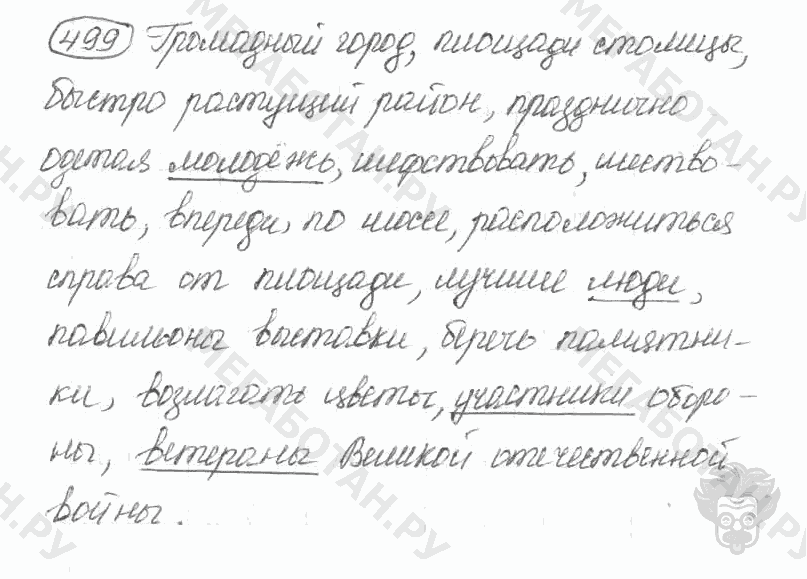 499 Громадный город, площади столицы,
быстро растущий район, празднично
одетая молодёжь, шефствовать, шество-
вать, впереди, по шоссе, расположиться
справа от площади, лучшие люди,
павильоны выставки, беречь памятни-
ки, возлагать цветы, участники оборо-
ны, ветераны Великой отечественной
войны.
МЕГАБОТАН.РУ